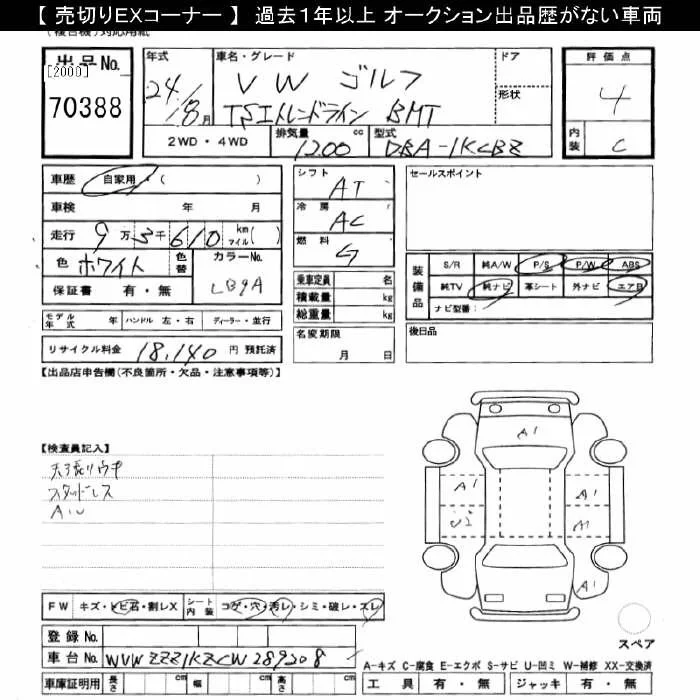 【 売切りEXコーナー 】 過去1年以上 オークション出品歴がない車両
(複合機)対応用紙
出品No.
[2000]
70388
年式
24/8月
車名・グレード
VW ゴルフ
TSIトレンドライン BMT
ドア
形状
評価点
4
内装
C
2WD・4WD
排気量 1200 cc
型式 DBA-1KCBZ
車歴 自家用・( )
車検 年 月
走行 9万3千610 km マイル( )
色 ホワイト 色替
カラーNo. LB9A
保証書 有・無
モデル年式 年 ハンドル 左・右 ディーラー・並行
リサイクル料金 18,140 円 預託済
シフト AT
冷房 AC
燃料 G
乗車定員 名
積載量 kg
総重量 kg
名変期限
月 日
セールスポイント
装備品
S/R 純A/W P/S P/W ABS
純TV 純ナビ 革シート 外ナビ エアB
ナビ型番( )
後日品
【出品店申告欄(不良箇所・欠品・注意事項等)】
【検査員記入】
天張リウキ
スタッドレス
AIU
A1
A1
A1
A1
A1
FW キズ・トビ石・割レX
シート内装 コゲ・穴・汚レ・シミ・破レ・スレ
登録No.
車台No. WVWZZZ1KZCW289208
車庫証明用 長さ cm 幅 cm 高さ cm
スペア
A-キズ C-腐食 E-エクボ S-サビ U-凹ミ W-補修 XX-交換済
工具 有・無 ジャッキ 有・無